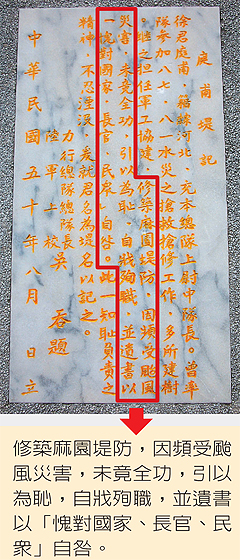 庭甫堤記
徐君庭甫,籍隸河北,充本總隊上尉中隊長。曾率
隊參加八、八一水災之搶救搶修工作,多所建樹
。繼之担任軍工協建,修築麻園堤防,因頻受颱風
災害,未竟全功,引以為恥,自戕殉職,並遺書以
「愧對國家、長官、民眾」自咎。此一知恥負責之
精神,不忍湮沒,爰就君名為堤名以記之。
力行總隊總隊長
陸軍上校 吳 題
中華民國五十年八月 日立
修築麻園堤防,因頻受颱
風災害,未竟全功,引以
為恥,自戕殉職,並遺書
以「愧對國家、長官、民
眾」自咎。